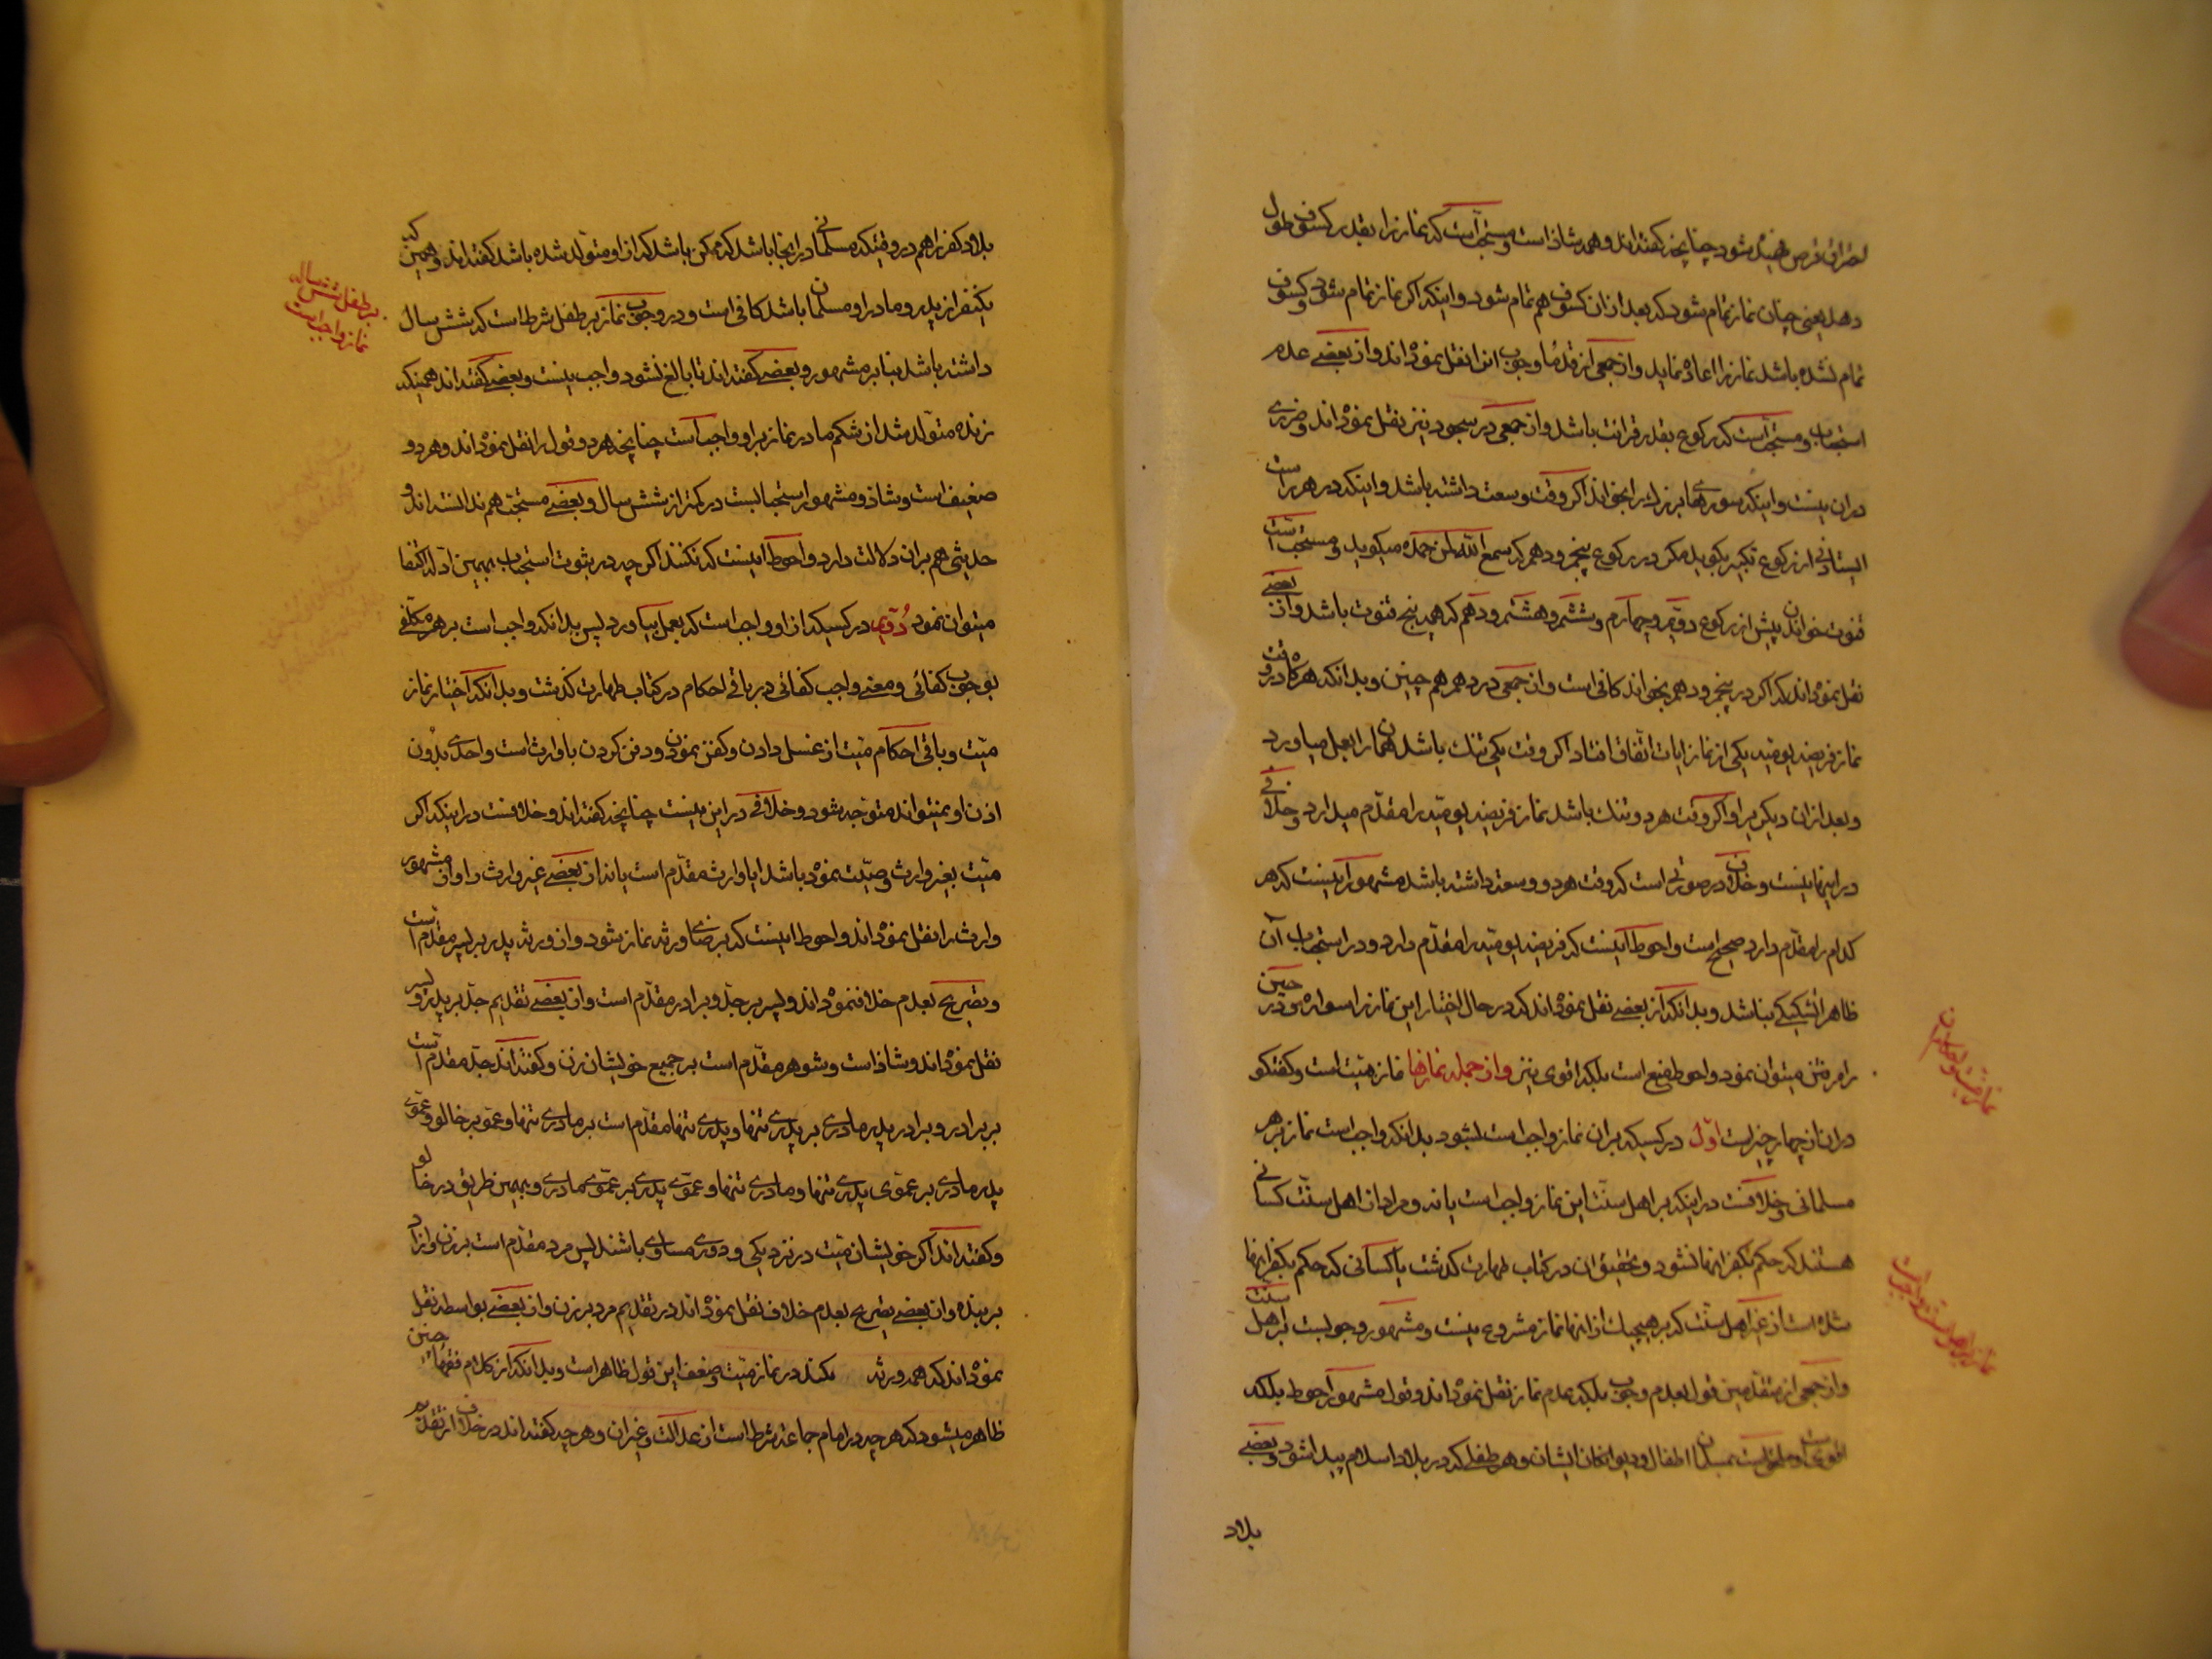 احتراق قرص شود چنانچه گفته‌اند و همه شاذ است و مستحب است که نماز را بقدر کسوف طول
دهد یعنی چنان نماز تمام شود که بعد از ان کسوف هم تمام شود و اینکه اکر نماز تمام شود و کسوف
تمام نشده باشد نماز را اعاده نماید و از جمعی از قدما وجوب انرا نقل نموده‌اند و از بعضی عدم
استحباب و مستحب است که رکوع بقدر قرائت باشد و از جمعی در سجود نیز نقل نموده‌اند و ضرری
در ان نیست و اینکه سوره‌های بزرک را بخواند اکر وقت وسعت داشته باشد و اینکه در هر راست
ایستادنی از رکوع تکبیر بکوید مکر در رکوع پنجم و دهم که سمع الله لمن حمده میکوید و مستحب است
قنوت خواندن پیش از رکوع دویم و چهارم و ششم و هشتم و دهم که همه پنج قنوت باشد و از بعضی
نقل نموده‌اند که اکر در پنجم و دهم بخواند کافی است و از جمعی در دهم هم چنین و بدانکه هرکاه در وقت
نماز فریضه یومیه یکی از نماز ایات اتفاق افتاد اکر وقت یکی تنک باشد همان را بعمل میاورد
و بعد از ان دیکری را و اکر وقت هر دو تنک باشد نماز فریضه یومیه را مقدم میدارد و خلافی
در اینها نیست و خلاف در صورتی است که وقت هر دو وسعت داشته باشد مشهور آنست که هر
کدام را مقدم دارد صحیح است و احوط آنست که فریضه یومیه را مقدم دارد و در استحباب آن
ظاهرا تشکیکی نباشد و بدانکه از بعضی نقل نموده‌اند که در حال اختیار این نماز را سواره و در حین
راه رفتن میتوان نمود و احوط منع است بلکه اقوی نیز و از جمله نمازها نماز میت است و کفتکو
در ان از چهار چیز است اول در کسیکه بر ان نماز واجب است بدانکه واجب است نماز بر هر
مسلمانی و خلافست در اینکه بر اهل سنت این نماز واجب است یا نه و مراد از اهل سنت کسانی
هستند که حکم بکفر اینها نشود و تحقیق ان در کتاب طهارت کذشت یا کسانی که حکم بکفر اینها
شده است از غیر اهل سنت که بر هیچیک از اینها نماز مشروع نیست و مشهور وجوبست بر اهل سنت
و از جمعی از متقدمین قول بعدم وجوب بلکه بعدم نماز نقل نموده‌اند و قول مشهور احوط بلکه
اقوی است و ملحق است بمسلمان اطفال و دیوانکان ایشان و هر طفلی که در بلاد اسلام پیدا شود و بعضی
بلاد
نماز میت و احکام ان
بلاد کفر را هم در وقتیکه مسلمانی در اینجا باشد که ممکن باشد که از او متولد شده باشد کفته‌اند و همین که
یکنفر از پدر و مادر او مسلمان باشد کافی است و در وجوب نماز بر طفل شرط است که شش سال
داشته باشد بنا بر مشهور و بعضی کفته‌اند تا بالغ نشود واجب نیست و بعضی کفته‌اند همینکه
زنده متولد شد از شکم مادر نماز بر او واجب است چنانچه هر دو قول را نقل نموده‌اند و هر دو
ضعیف است و شاذ و مشهور استحبابست در کمتر از شش سال و بعضی مستحب هم ندانسته‌اند و
حدیثی هم بر ان دلالت دارد و احوط اینست که نکنند اکر چه در ثبوت استحباب بهمین ادله اکتفا
میتوان نمود دویم در کسیکه از او واجب است که بعمل بیاورد پس بدانکه واجب است بر هر مکلفی
بوجوب کفائی و معنی واجب کفائی در باقی احکام در کتاب طهارت کذشت و بدانکه اختیار نماز
میت و باقی احکام میت از غسل دادن و کفن نمودن و دفن کردن با وارث است و احدی بدون
اذن او نمیتواند متوجه شود و خلافی در این نیست چنانچه کفته‌اند و خلافست در اینکه اکر
میت بغیر وارث وصیت نموده باشد ایا وارث مقدم است یا نه از بعضی غیر وارث را و از مشهور
وارث را نقل نموده‌اند و احوط اینست که برضای ورثه نماز شود و از ورثه پدر بر پسر مقدم است
و تصریح بعدم خلاف نموده‌اند و پسر بر جد و برادر مقدم است و از بعضی تقدیم جد بر پدر و پسر
نقل نموده‌اند و شاذ است و شوهر مقدم است بر جمیع خویشان زن و کفته‌اند جد مقدم است
بر برادر و برادر پدر مادری بر پدری تنها و پدری تنها مقدم است بر مادری تنها و عمو بر خالو و عموی
پدر مادری بر عموی پدری تنها و مادری تنها و عموی پدری بر عموی مادری و بهمین طریق در خالو
و کفته‌اند اکر خویشان میت در نزدیکی و دوری مساوی باشند پس مرد مقدم است بر زن و ازاد
بر بنده و از بعضی تصریح بعدم خلاف نقل نموده‌اند در تقدیم مرد بر زن و از بعضی بواسطه نقل
نموده‌اند که همه ورثه بکند در نماز میت و ضعف این قول ظاهر است و بدانکه از کلام فقها چنین
ظاهر میشود که هر چه در امام جماعة شرط است از عدالت و غیر ان و هر چه کفته‌اند در خلاف از تقدیم
بر طفل شش ساله
نماز واجب است